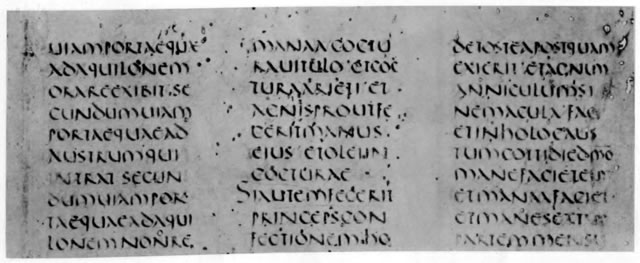 UIAMPORTAEQUAE
ADAQUILONEM
ORAREEXIBIT·SE
CUNDUMUIAM
PORTAEQUAEAD
AUSTRUMQUI
INTRAT SECUN
DUMUIAMPOR
TAEQUAEADAQUI
LONEMNONRE
MANAACOCTU
RAUITULO·ETCOC
TURAARIETI·ET
AGNISPROUTFE
CERITMANUS
EIUS ETOLEUM
COCTURAE
SIAUTEMFECERIT
PRINCEPSCON
FECTIONEMHO
DETOSTEAPOSTQUAM
EXIERIT·ETAGNUM
ANNICULUMSI
NEMACULAFAC
ETINHOLOCAUS
TUMCOTTIDIEDMO
MANEFACIETEUM
ETMANAAFACIET
ETMANESEXTA
PARTEMMENSU